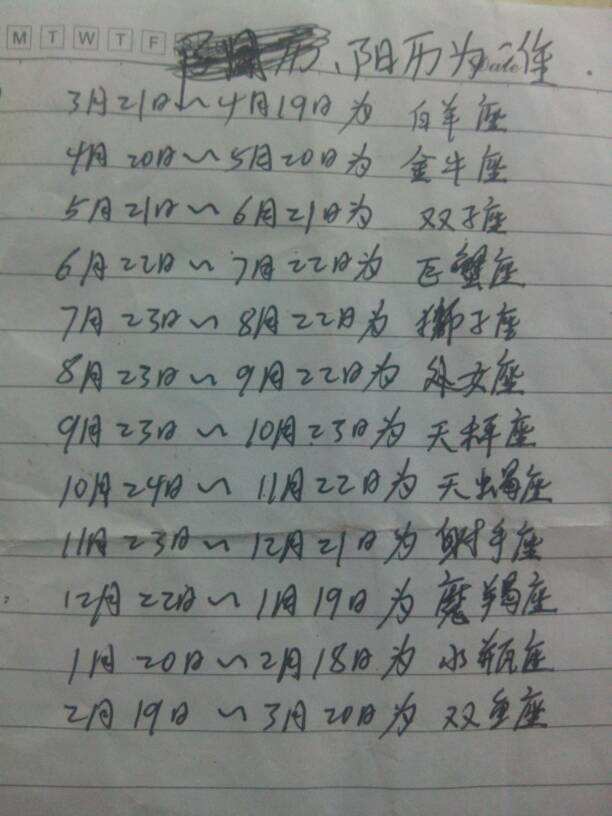 M T W T F
历、阳历为准.
Date
3月21日~4月19日为 白羊座
4月20日~5月20日为 金牛座
5月21日~6月21日为 双子座
6月22日~7月22日为 巨蟹座
7月23日~8月22日为 狮子座
8月23日~9月22日为 处女座
9月23日~10月23日为 天秤座
10月24日~11月22日为 天蝎座
11月23日~12月21日为 射手座
12月22日~1月19日为 魔羯座
1月20日~2月18日为 水瓶座
2月19日~3月20日为 双鱼座